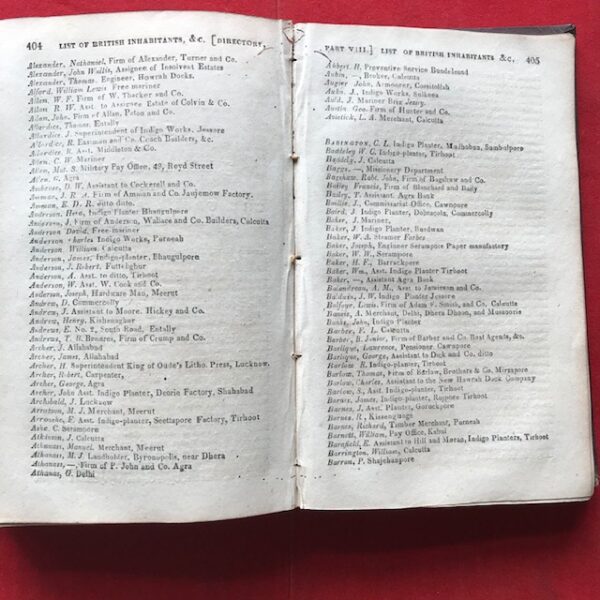 404 LIST OF BRITISH INHABITANTS, &C. [DIRECTORY,
Alexander, Nathaniel, Firm of Alexander, Turner and Co.
Alexander, John Wallis, Assignee of Insolvent Estates
Alexander, Thomas. Engineer, Howrah Docks.
Alford, William Lewis Free mariner
Allan, W. F. Firm of W. Thacker and Co.
Allan R. W. Asst to Assignee Estate of Colvin & Co.
Allan, John, Firm of Allan, Paton and Co.
Allardice, Thomas. Entally
Allardice, J. Superintendent of Indigo Works, Jessore
Allardice, R. Eastman and Co. Coach Builders, &c.
Allardice, R. Asst. Middleton & Co.
Allen, C. W. Mariner
Allen, Mat. S. Military Pay Office, 49, Royd Street
Allen, G. Agra
Ambrose, D. W. Assistant to Cockerell and Co.
Amman, J. R. Jr. Firm of Amman and Co. Jaujemow Factory.
Amman, E. D. R. ditto ditto.
Anderson, Hero, Indigo Planter Bhaugulpore
Anderson, J. Firm of Anderson, Wallace and Co. Builders, Calcutta
Anderson David, Free mariner
Anderson Charles Indigo Works, Purneah
Anderson William, Calcutta
Anderson, James, Indigo-planter, Bhaugulporn
Anderson, J. Robert, Futtehghur
Anderson, A. Asst. to ditto, Tirhoot
Anderson, W. Asst. W. Cook and Co.
Anderson, Joseph, Hardware Man, Meerut
Andrew, D. Commercolly
Andrew, J. Assistant to Moore. Hickey and Co.
Andrew, Henry, Kishenaghur
Andrews, E. No. 2, South Road, Entally
Andrews, T. B. Broaers, Firm of Crump and Co.
Archer, J. Allahabad
Archer, James, Allahabad
Archer, H. Superintendent King of Oude's Litho. Press, Lucknow.
Archer, Robert, Carpenter,
Archer, George, Agra
Archer, John Asst. Indigo Planter, Deorie Factory, Shahabad
Archibald, J. Lucknow
Arratoon, M. J. Merchant, Meerut
Arrowske, E Asst. Indigo-planter, Seettapore Factory, Tirhoot
Ashe, C. Serampore
Atkinson, J. Calcutta
Athanass, Manuel. Merchant, Meerut
Athanass, M. J. Landholder, Byronopolis, near Dhera
Athanass, —, Firm of P. John and Co. Agra
Athanas, G. Delhi
PART VIII.] LIST OF BRITISH INHABITANTS &C. 405
Aubert, H. Preventive Service Bundelcund
Aubin, —, Broker, Calcutta
Augier John, Armourer, Cossitollah
Aubin J. Indigo Works, Sulkea
Auld, J. Mariner Brig Jessy
Austin Geo. Firm of Hunter and Co.
Avietick, L. A. Merchant, Calcutta
BABINGTON, C. L. Indigo Planter, Mudhabun, Sumbulpore
Baddeley W C. Indigo-planter, Tirhoot
Baddely, J. Calcutta
Baggs, —, Missionary Department
Bagshaw, Robt. John, Firm of Bagshaw and Co.
Bailey Francis, Firm of Blanchard and Baily
Bailey, T. Assistant Agra Bank
Baillie, J., Commissariat Office, Cawnpore
Baird, J. Indigo Planter, Dobrapola, Commercolly
Baker, J. Mariner,
Baker, J. Indigo Planter, Burdwan
Baker, W. A. Steamer Forbes
Baker, Joseph, Engineer Serampore Paper manufactory
Baker, W. W., Serampore
Baker, H. F., Barrackpore
Baker, Wm., Asst. Indigo Planter Tirhoot
Baker, —, Assistant Agra Bank
Balandreau, A. M., Asst. to Jameison and Co.
Baldwin, J. W. Indigo Planter Jessore
Balfour, Lewis, Firm of Adam F. Smith, and Co. Calcutta
Bannis, A. Merchant, Delhi, Dhera Dhoon, and Mussoorie
Banks, John, Indigo Planter
Barber, F. L. Calcutta
Barber, B. Junior, Firm of Barber and Co. East Agents, &c.
Barlique, Lawrence, Pensioner, Cawnpore
Barlique, George, Assistant to Dick and Co. ditto
Barlow R. Indigo-planter, Tirhoot
Barlow, Thomas, Firm of Barlow, Brothers & Co. Mirzapore
Barlow, Charles, Assistant to the New Howrah Dock Company
Barlow, S., Asst. Indigo Planter, Tirhoot
Barnes, James, Indigo-planter, Rupnee Tirhoot
Barnes, J. Asst. Planter, Goruckpore
Barnes, R., Kissengunge
Barnes, Richard, Timber Merchant, Purneah
Barnett, William, Pay Office, Kabul
Barafield, E. Assistant to Hill and Moran, Indigo Planters, Tirhoot
Barrington, William, Calcutta
Barron, P. Shajehanpore